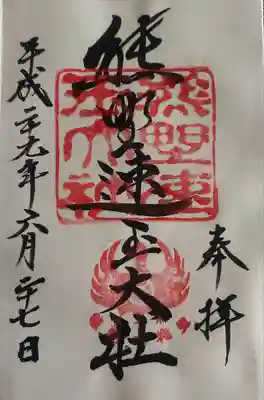 奉拝
熊野速玉大社
熊野速
玉大社
平成二十九年六月二十七日